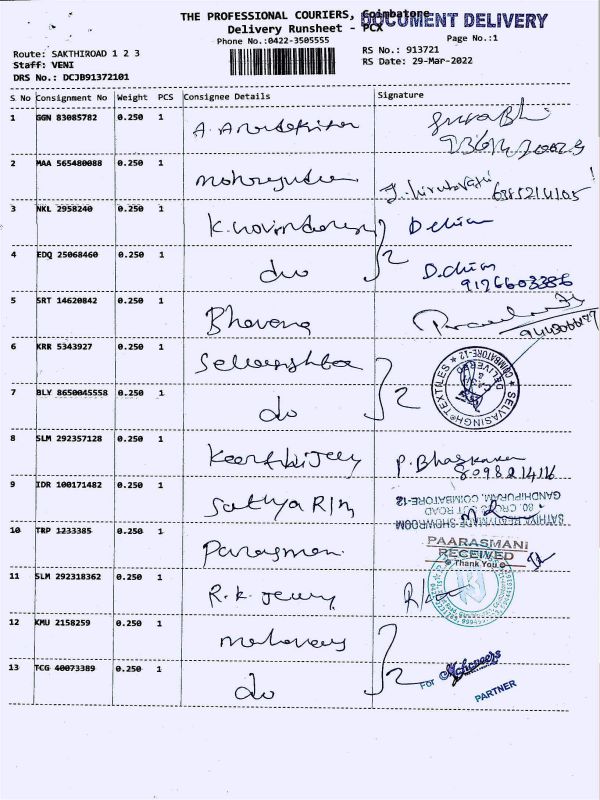 THE PROFESSIONAL COURIERS, Coimbatore
DOCUMENT DELIVERY
Delivery Runsheet - PCX
Phone No.:0422-3505555
Page No.:1
Route: SAKTHIROAD 1 2 3
RS No.: 913721
Staff: VENI
RS Date: 29-Mar-2022
DRS No.: DCJB91372101
S No Consignment No Weight PCS Consignee Details Signature
1 GGN 83085782 0.250 1
2 MAA 565480088 0.250 1 6385214105
3 NKL 2958240 0.250 1 2
4 EDQ 25068460 0.250 1 do
5 SRT 14620842 0.250 1 Bhavana
6 KRR 5343927 0.250 1
7 BLY 8650045558 0.250 1 do 2
SELVASINGH TEXTILES ★ COIMBATORE-12 ★ DELIVERED
8 SLM 292357128 0.250 1 P. Bhaskaran
9 IDR 100171482 0.250 1 Sathya R/M
SATHYA READYMADE SHOWROOM
80, CROSS CUT ROAD
GANDHIPURAM, COIMBATORE-12
10 TRP 1233385 0.250 1 Parasmani
PAARASMANI
RECEIVED
Thank You
11 SLM 292318362 0.250 1 R.K. Jewry
12 KMU 2158259 0.250 1 2
13 TCG 40073389 0.250 1 do
For Mohaneers
PARTNER